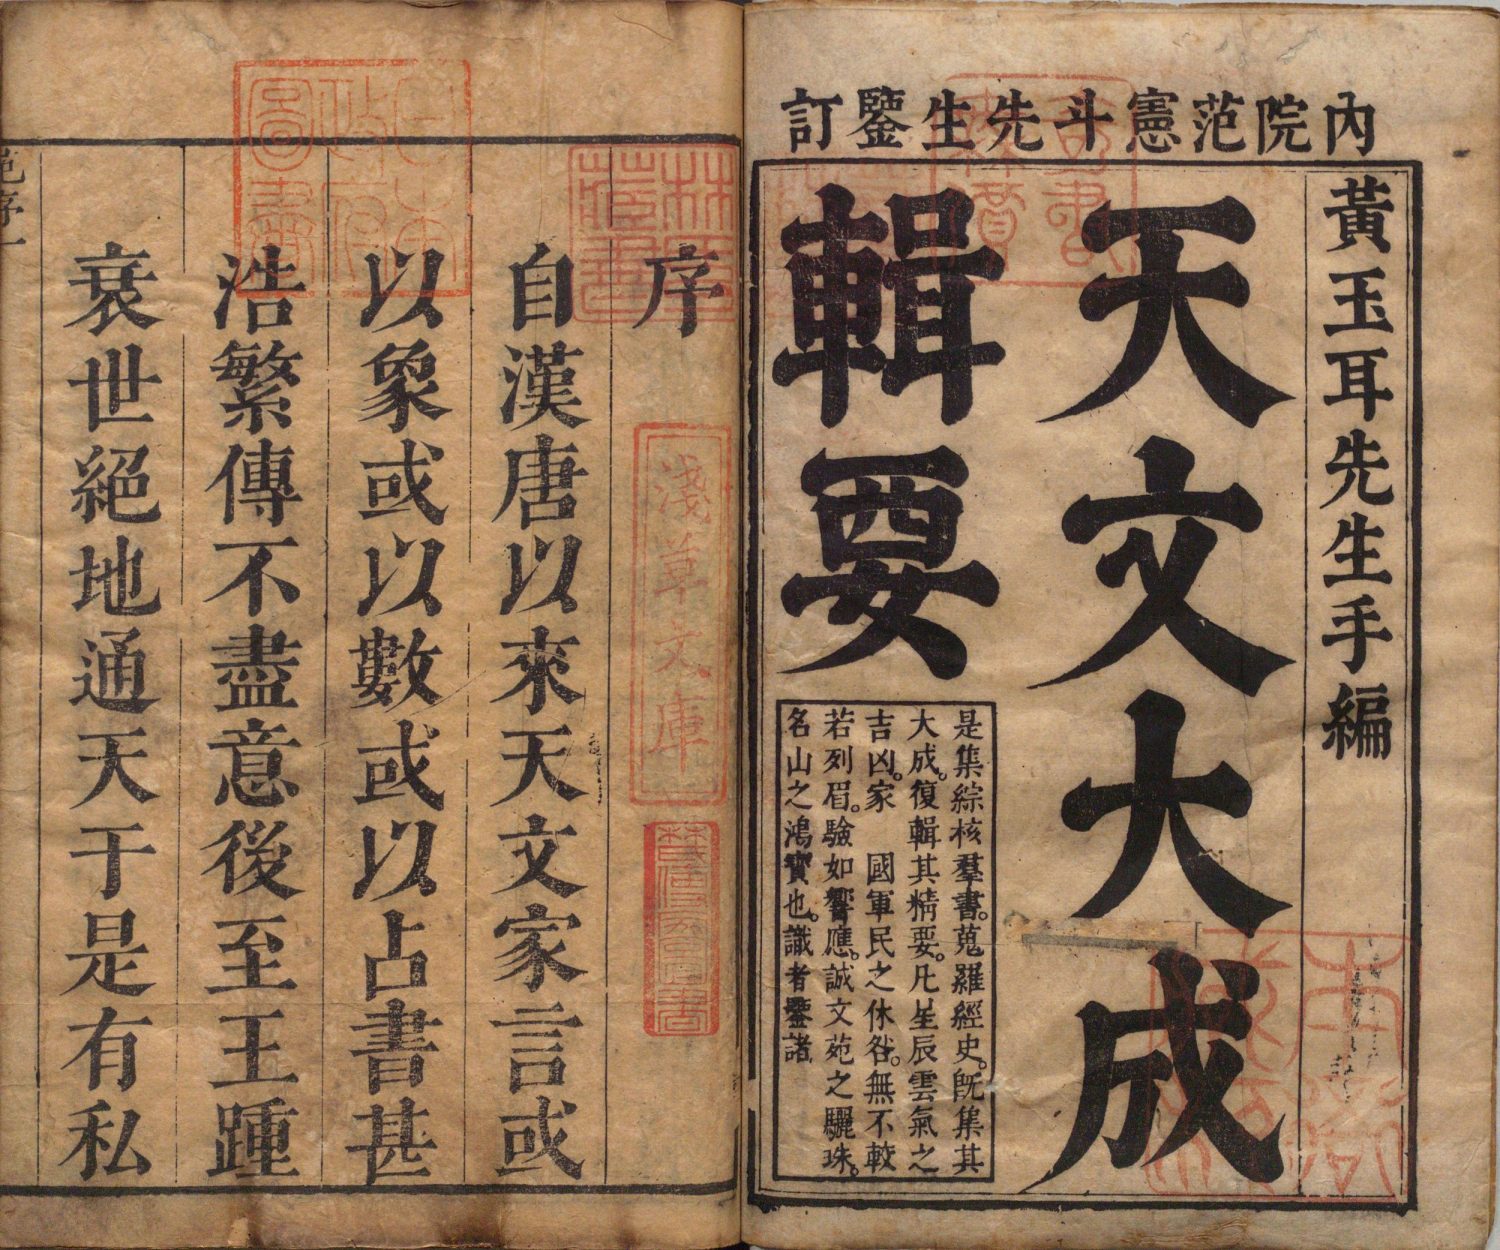 內院范憲斗先生鑒訂
黃玉耳先生手編
天文大成
輯要
是集綜核羣書。蒐羅經史。旣集其
大成。復輯其精要。凡星辰雲氣之
吉凶。家 國軍民之休咎。無不較
若列眉。驗如響應。誠文苑之驪珠。
名山之鴻寶也。識者鑒諸
序
淺草文庫
自漢唐以來天文家言或
以象或以數或以占書甚
浩繁傳不盡意後至王踵
衰世絕地通天于是有私